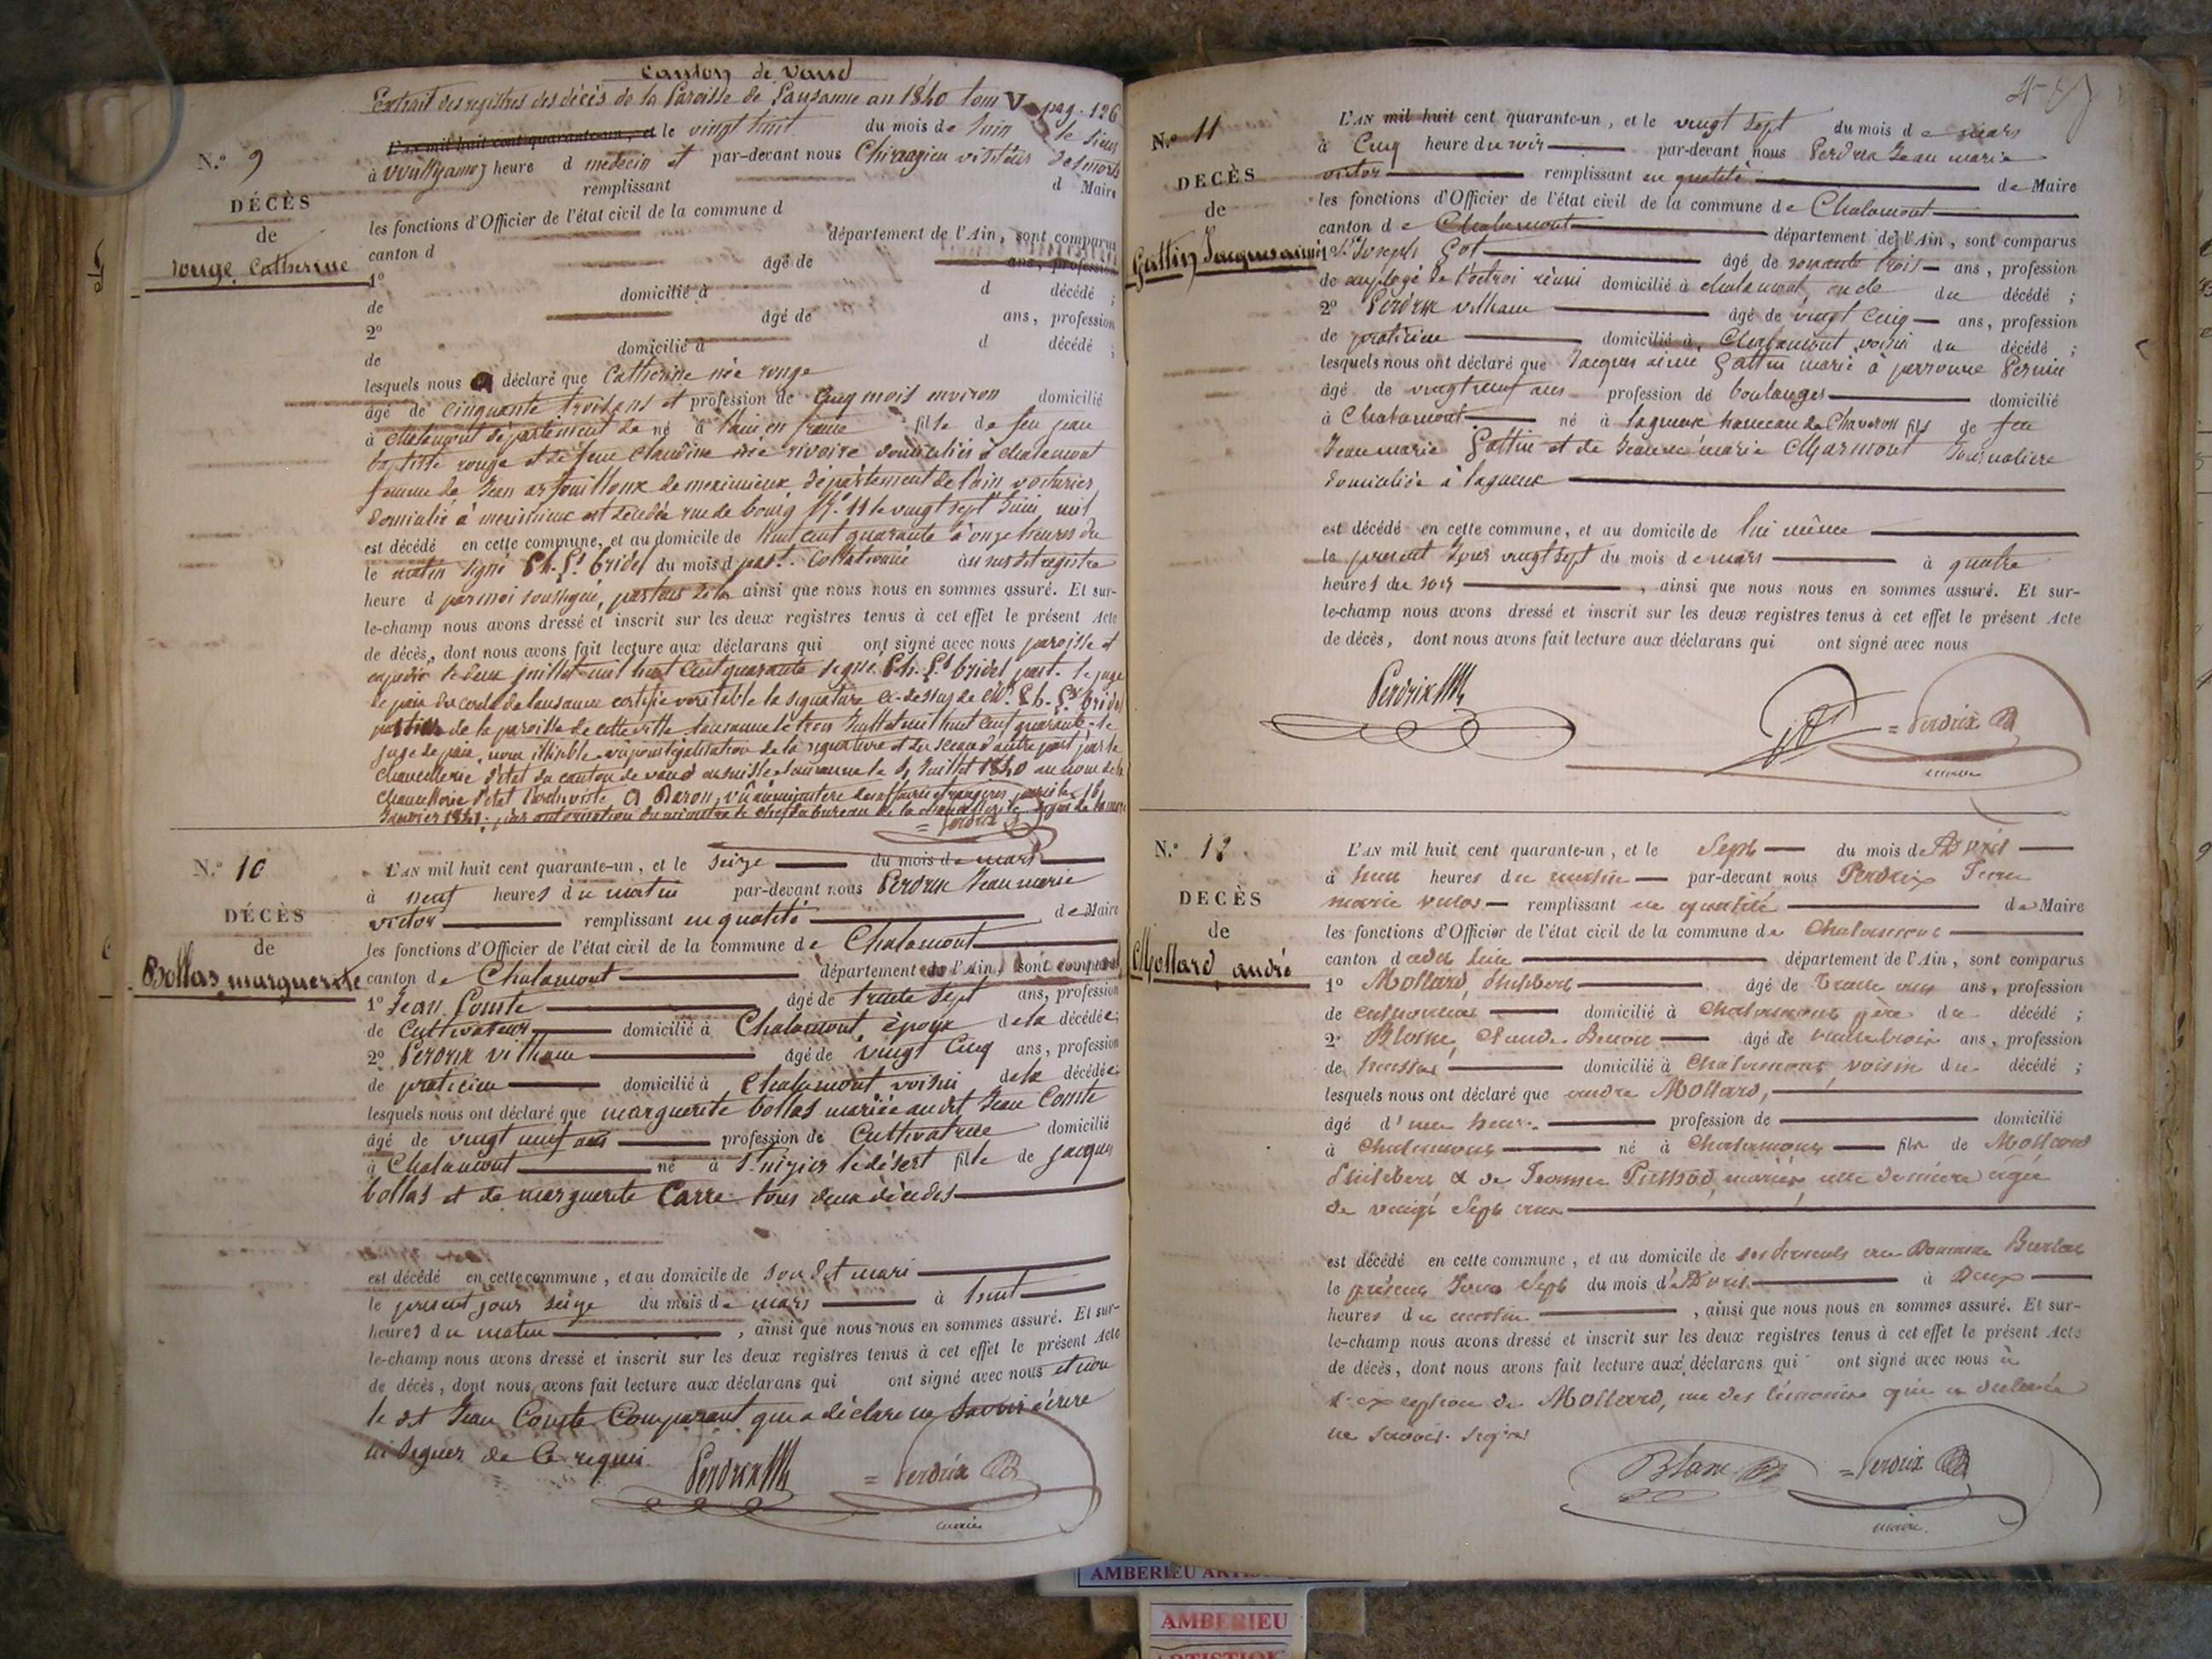 canton de Vaud
Extrait des registres des décès de la Paroisse de Lausanne an 1840 tom V pag. 126
N.º 9
DÉCÈS
de
rouge Catherine
L'an mil huit cent quarante-un, et le vingt huit du mois de Juin le sieur
à heure d médecin et par-devant nous Chirurgien visiteur des morts
remplissant d Maire
les fonctions d'Officier de l'état civil de la commune d
canton d département de l'Ain, sont comparus
1º âgé de ans, profession
de domicilié à d décédé ;
2º âgé de ans, profession
de domicilié à d décédé ;
lesquels nous a déclaré que Catherine née rouge
âgé de cinquante trois ans et profession de cinq mois environ domicilié
à chalamont département de né à l'ain en france fille de feu jean
baptiste rouge et de feue claudine née rivoire domiciliés à chalamont
femme de Jean de meximieux département de l'ain voiturier
domicilié à meximieux est décédée rue de bourg Nº 11 le vingt sept Juin mil
est décédé en cette commune, et au domicile de huit cent quarante à onze heures du
le matin signé Ph. Ls bridel du mois d past. Collationné au susdit registre
heure d par moi soussigné, pasteur de la ainsi que nous nous en sommes assuré. Et sur-
le-champ nous avons dressé et inscrit sur les deux registres tenus à cet effet le présent Acte
de décès, dont nous avons fait lecture aux déclarans qui ont signé avec nous paroisse et
expédié le deux juillet mil huit cent quarante signé Ph. Ls bridel past. le juge
de paix du cercle de lausanne certifie véritable la signature ci-dessus de Mr. Ph. Ls bridel
pasteur de la paroisse de cette ville lausanne le trois Juillet mil huit cent quarante le
juge de paix, nom illisible. vu pour légalisation de la signature et du sceau d'autre part par la
chancellerie d'état du canton de vaud en suisse lausanne le Juillet 1840 au nom de la
chancellerie d'état l'archiviste A Baron, vu au ministère des affaires étrangères paris le 16
Janvier 1841. par autorisation du ministre le chef du bureau de la chancellerie signé de lamare
= Perdrix
N.º 10
DÉCÈS
de
Bollas marguerite
L'an mil huit cent quarante-un, et le seize du mois de mars
à neuf heures du matin par-devant nous Perdrix Jean marie
victor remplissant en qualité de Maire
les fonctions d'Officier de l'état civil de la commune de Chalamont
canton de Chalamont département de l'Ain, sont comparus
1º Jean Comte âgé de trente sept ans, profession
de Cultivateur domicilié à Chalamont, époux de la décédée;
2º Perdrix vilhaume âgé de vingt cinq ans, profession
de praticien domicilié à Chalamont voisin de la décédée
lesquels nous ont déclaré que marguerite bollas mariée audit Jean Comte
âgé de vingt neuf ans profession de Cultivatrice domicilié
à Chalamont né à St. nizier le désert fille de jacques
bollas et de marguerite Carre tous deux décédés
est décédé en cette commune, et au domicile de son dit mari
le présent jour seize du mois de mars à huit
heures du matin , ainsi que nous nous en sommes assuré. Et sur-
le-champ nous avons dressé et inscrit sur les deux registres tenus à cet effet le présent Acte
de décès, dont nous avons fait lecture aux déclarans qui ont signé avec nous et non
le dit Jean Comte Comparant qui a déclaré ne savoir écrire
ni signer de ce requis.
Perdrix = Perdrix
maire
N.º 11
DECÈS
de
Gattin Jacques aimé
L'an mil huit cent quarante-un, et le vingt sept du mois de mars
à Cinq heure du soir par-devant nous Perdrix Jean marie
victor remplissant en qualité de Maire
les fonctions d'Officier de l'état civil de la commune de Chalamont
canton de Chalamont département de l'Ain, sont comparus
1º Joseph Got âgé de soixante trois ans, profession
de employé de l'octroi réuni domicilié à chalamont, oncle du décédé ;
2º Perdrix vilhaume âgé de vingt cinq ans, profession
de praticien domicilié à Chalamont voisin du décédé ;
lesquels nous ont déclaré que Jacques aimé Gattin marié à perronne Pernin
âgé de vingt neuf ans profession de boulanger domicilié
à Chalamont né à lagnieux hameau de Chaveron fils de feu
Jean marie Gattin et de Jeanne marie Charmont Journalière
domiciliée à lagnieux
est décédé en cette commune, et au domicile de lui même
le présent jour vingt sept du mois de mars à quatre
heures du soir , ainsi que nous nous en sommes assuré. Et sur-
le-champ nous avons dressé et inscrit sur les deux registres tenus à cet effet le présent Acte
de décès, dont nous avons fait lecture aux déclarans qui ont signé avec nous
Perdrix = Perdrix
maire
N.º 12
DECÈS
de
Mollard andré
L'an mil huit cent quarante-un, et le Sept du mois d'Avril
à huit heures du matin par-devant nous Perdrix Jean
marie victor remplissant en qualité de Maire
les fonctions d'Officier de l'état civil de la commune de Chalamont
canton d département de l'Ain, sont comparus
1º Mollard, Philibert âgé de Trente ans, profession
de domicilié à Chalamont père du décédé ;
2º Claude Benoit âgé de ans, profession
de domicilié à Chalamont, voisin du décédé ;
lesquels nous ont déclaré que andre Mollard,
âgé d'une heure profession de domicilié
à Chalamont né à Chalamont fils de Mollard
Philibert & de Jeanne mariés, cette dernière âgée
de vingt Sept ans
est décédé en cette commune, et au domicile de ses parents au Domaine
le présent Jour Sept du mois d'Avril à Deux
heures du matin , ainsi que nous nous en sommes assuré. Et sur-
le-champ nous avons dressé et inscrit sur les deux registres tenus à cet effet le présent Acte
de décès, dont nous avons fait lecture aux déclarans qui ont signé avec nous à
l'exception de Mollard, un des témoins qui a déclaré
ne savoir signer
Blanc = Perdrix
maire
AMBERIEU
AMBERIEU